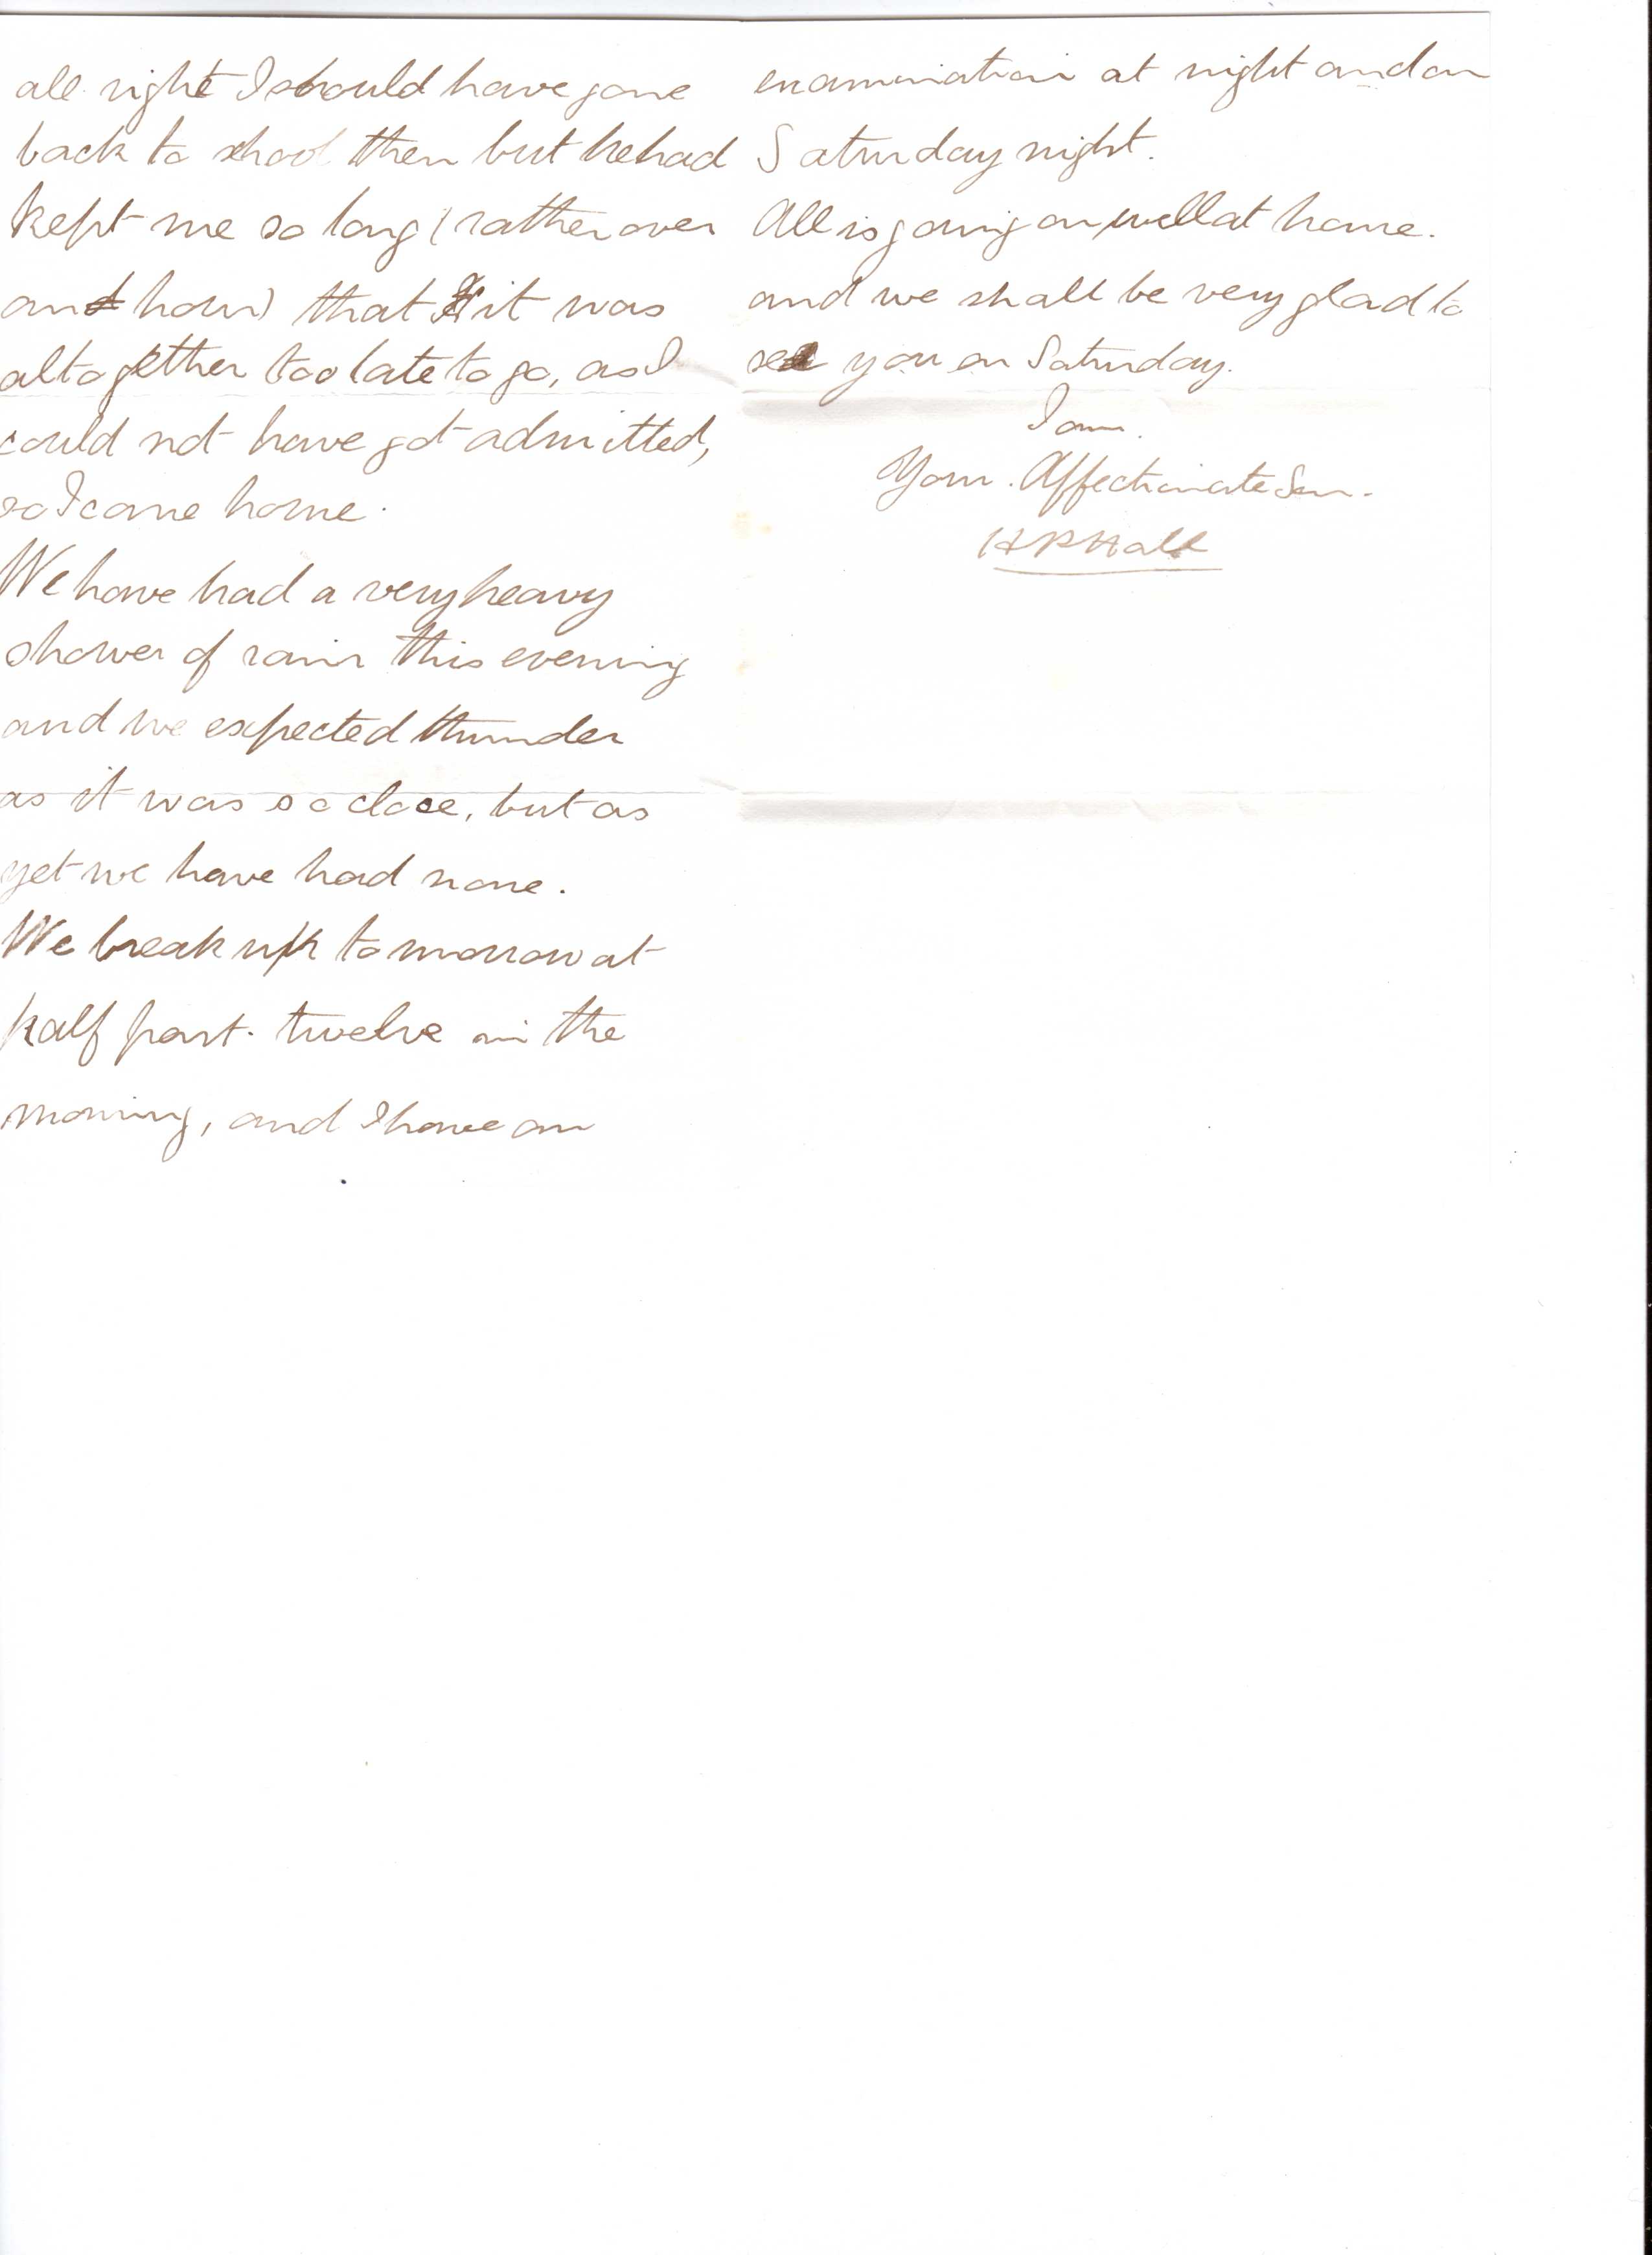 all right I should have gone
back to school then but he had
kept me so long (rather over
an hour) that it was
altogether too late to go, as I
could not have got admitted,
so I came home.
We have had a very heavy
shower of rain this evening
and we expected thunder
as it was so close, but as
yet we have had none.
We break up tomorrow at
half past twelve in the
morning, and I have an
examination at night and on
Saturday night.
All is going on well at home.
and we shall be very glad to
see you on Saturday.
I am.
Your Affectionate Son.
H R Hall